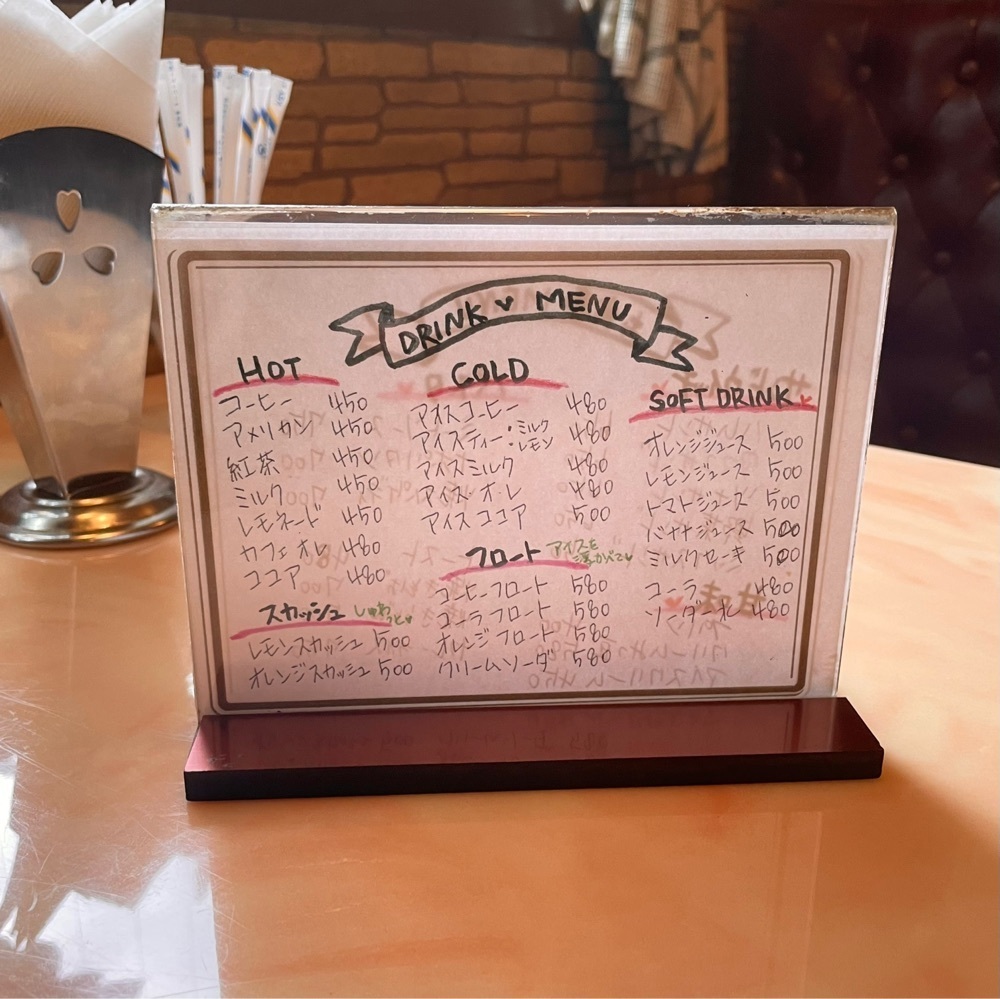 DRINK ♥ MENU
HOT
コーヒー 450
アメリカン 450
紅茶 450
ミルク 450
レモネード 450
カフェオレ 480
ココア 480
スカッシュ しゅわっと♥
レモンスカッシュ 500
オレンジスカッシュ 500
COLD
アイスコーヒー 480
アイスティー・ミルク・レモン 480
アイスミルク 480
アイス・オ・レ 480
アイスココア 500
フロート アイスを浮かべて♥
コーヒーフロート 580
コーラフロート 580
オレンジフロート 580
クリームソーダ 580
SOFT DRINK
オレンジジュース 500
レモンジュース 500
トマトジュース 500
バナナジュース 500
ミルクセーキ 500
コーラ 480
ソーダー水 480